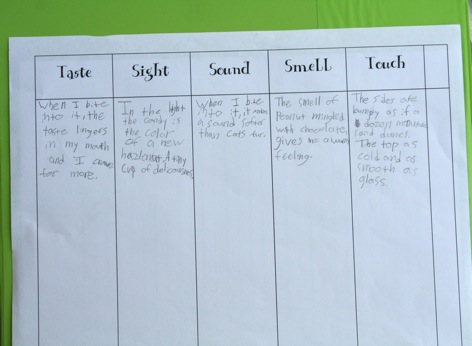 Taste
Sight
Sound
Smell
Touch
When I bite
into it, the
taste lingers
in my mouth
and I crave
for more.
In the light
the candy is
the color
of a new
A tiny
cup of deliciousness
When I bite
into it, it makes
a sound softer
than cats fur.
The smell of
Peanut mingled
with chocolate,
gives me a warm
feeling.
The sides are
bumpy as if a
dozen
sand dunes.
The top as
cold and as
smooth as
glass.